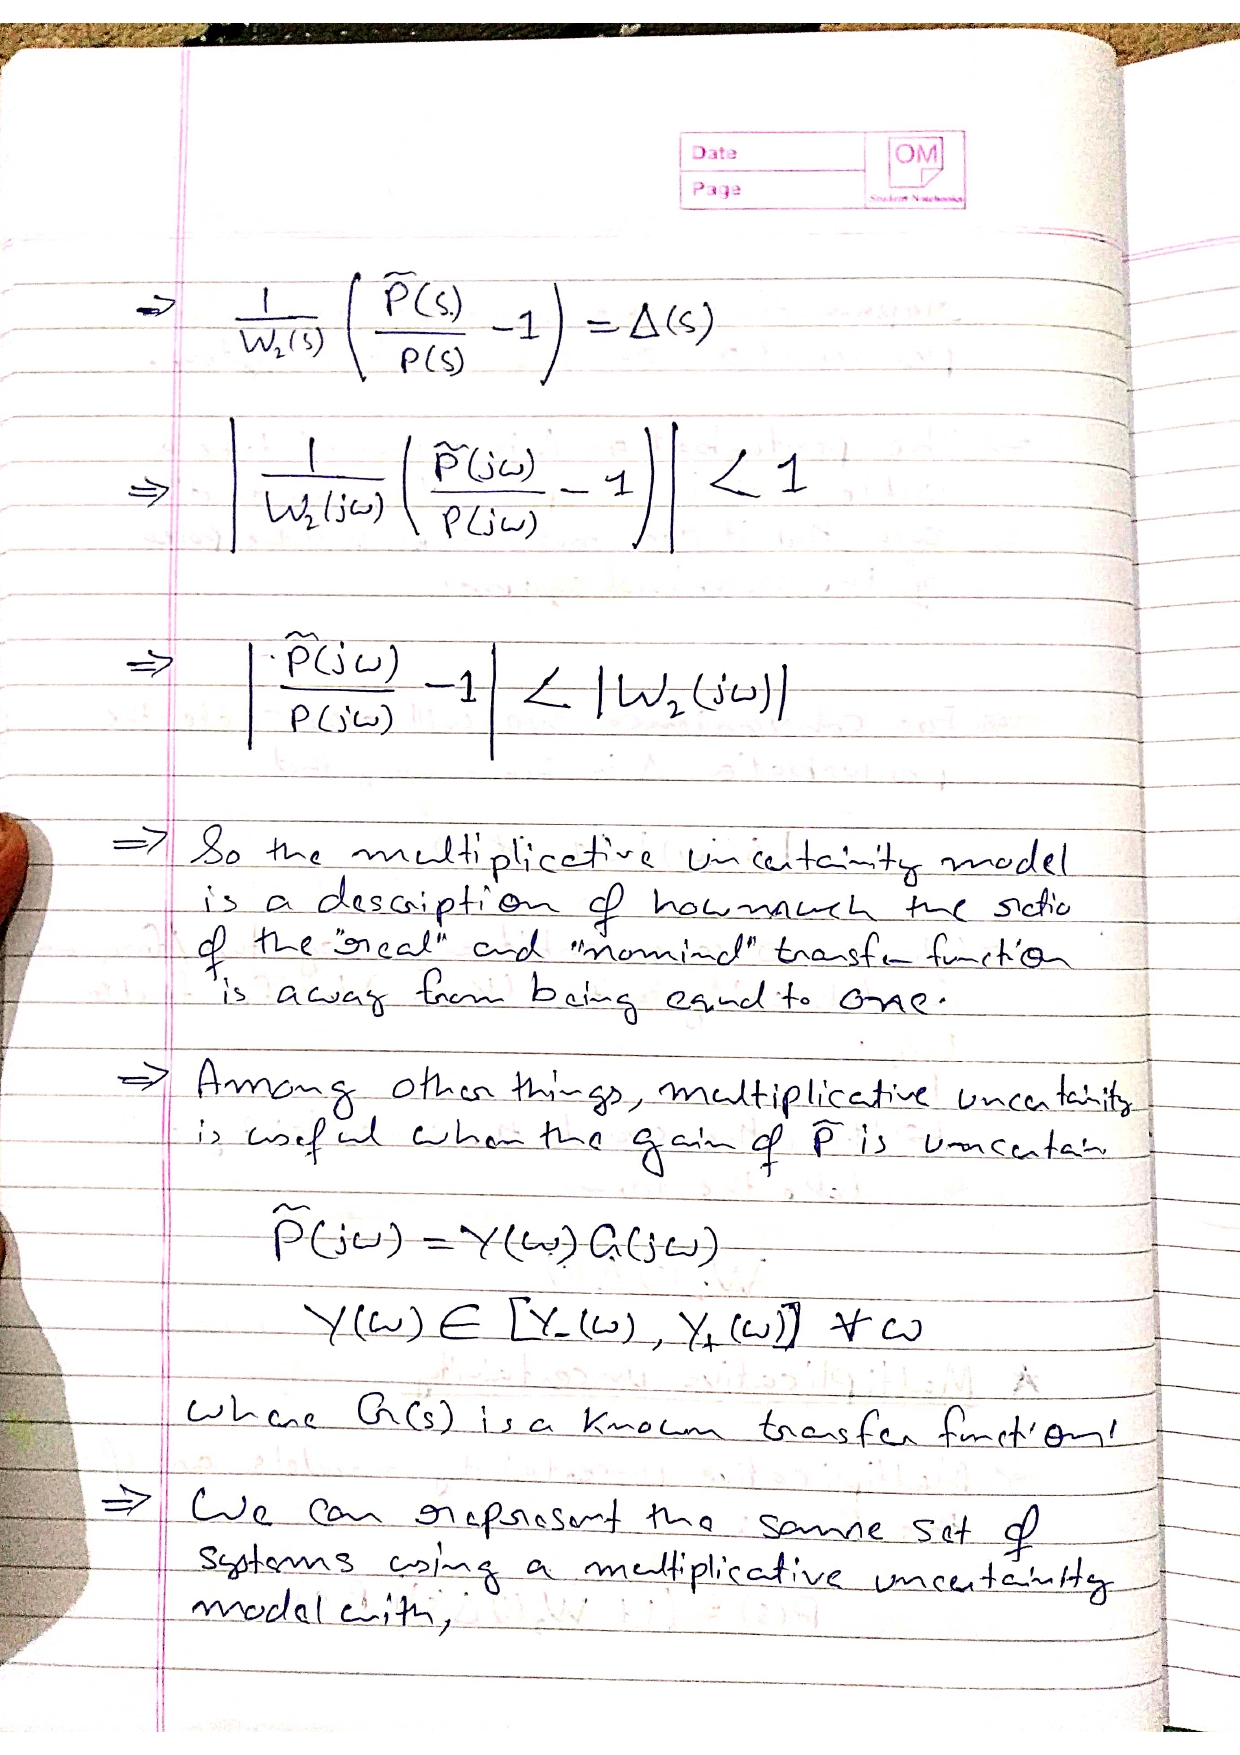 Date
OM
Page
Student Notebooks
⇒ 1/W₂(s) ( P̃(s)/P(s) - 1 ) = Δ(s)
⇒ | 1/W₂(jω) ( P̃(jω)/P(jω) - 1 ) | < 1
⇒ | P̃(jω)/P(jω) - 1 | < |W₂(jω)|
⇒ So the multiplicative uncertainity model
is a description of how much the ratio
of the "real" and "nominal" transfer function
is away from being equal to one.
⇒ Among other things, multiplicative uncertainity
is useful when the gain of P̃ is uncertain
P̃(jω) = Y(ω) G(jω)
Y(ω) ∈ [Y₋(ω), Y₊(ω)] ∀ ω
where G(s) is a known transfer function.
⇒ We can represent the same set of
systems using a multiplicative uncertainity
model with,